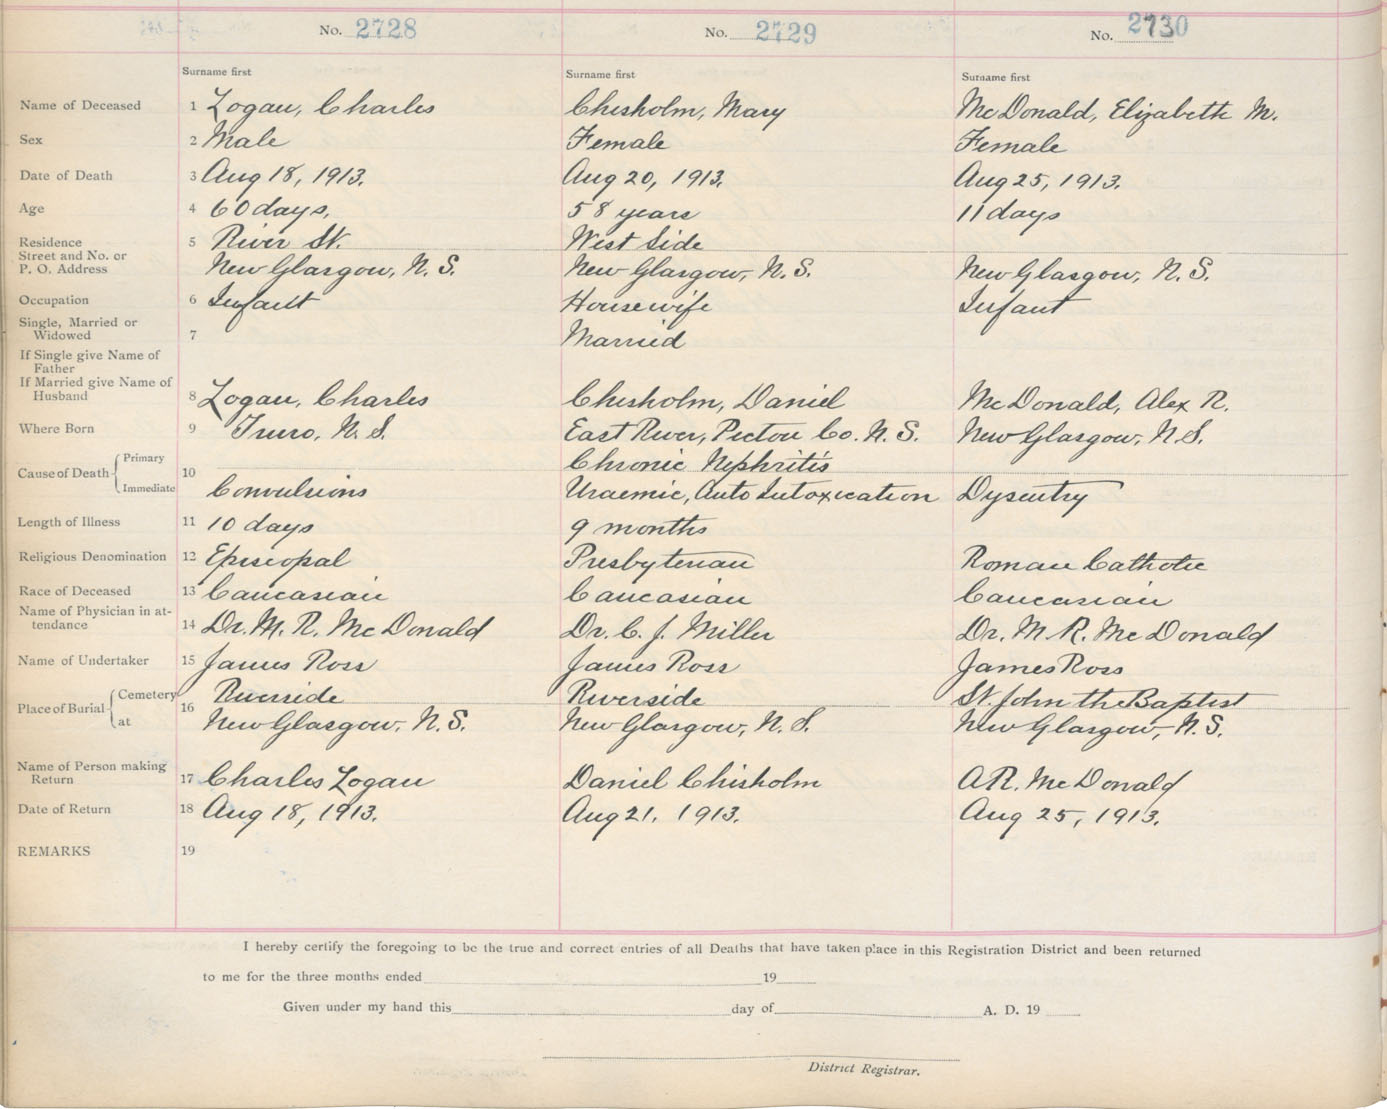 No. 2728 No. 2729 No. 2730
Surname first Surname first Surname first
Name of Deceased 1 Logan, Charles Chisholm, Mary McDonald, Elizabeth M.
Sex 2 Male Female Female
Date of Death 3 Aug 18, 1913. Aug 20, 1913. Aug 25, 1913.
Age 4 60 days. 58 years 11 days
Residence 5 River St. West Side
Street and No. or
P. O. Address New Glasgow, N. S. New Glasgow, N. S. New Glasgow, N. S.
Occupation 6 Infant Housewife Infant
Single, Married or
Widowed 7 Married
If Single give Name of
Father
If Married give Name of
Husband 8 Logan, Charles Chisholm, Daniel McDonald, Alex R.
Where Born 9 Truro, N. S. East River, Pictou Co. N. S. New Glasgow, N. S.
Cause of Death Primary 10 Chronic Nephritis
Immediate Convulsions Uraemic, Auto Intoxication Dysentry
Length of Illness 11 10 days 9 months
Religious Denomination 12 Episcopal Presbyterian Roman Catholic
Race of Deceased 13 Caucasian Caucasian Caucasian
Name of Physician in at-
tendance 14 Dr. M. R. McDonald Dr. C. J. Miller Dr. M. R. McDonald
Name of Undertaker 15 James Ross James Ross James Ross
Place of Burial Cemetery 16 Riverside Riverside St. John the Baptist
at New Glasgow, N. S. New Glasgow, N. S. New Glasgow, N. S.
Name of Person making
Return 17 Charles Logan Daniel Chisholm A R. McDonald
Date of Return 18 Aug 18, 1913. Aug 21, 1913. Aug 25, 1913.
REMARKS 19
I hereby certify the foregoing to be the true and correct entries of all Deaths that have taken place in this Registration District and been returned
to me for the three months ended 19
Given under my hand this day of A. D. 19
District Registrar.